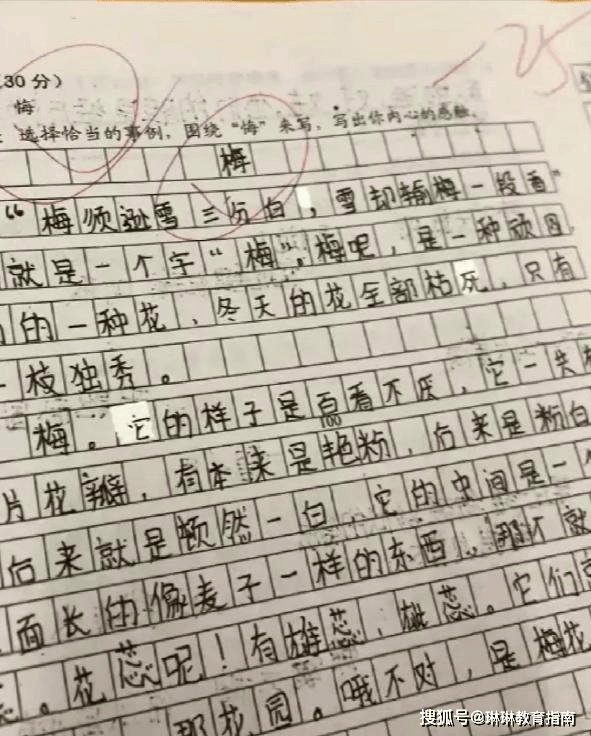 -25
30分）
悔
选择恰当的事例，围绕“悔”来写，写出你内心的感触。
梅
“梅须逊雪三分白，雪却输梅一段香”
就是一个字“梅”，梅呢，是一种顽固
的一种花，冬天的花全部枯死，只有
一枝独秀。
梅。它的样子是百看不厌，它一共
100
片花瓣，有本来是艳粉，后来是粉白
后来就是顿然一白，它的中间是一个
面长的像麦子一样的东西。那不就
。花蕊呢！有雄蕊，雌蕊。它们
那花园。哦不对，是梅花
搜狐号@琳琳教育指南